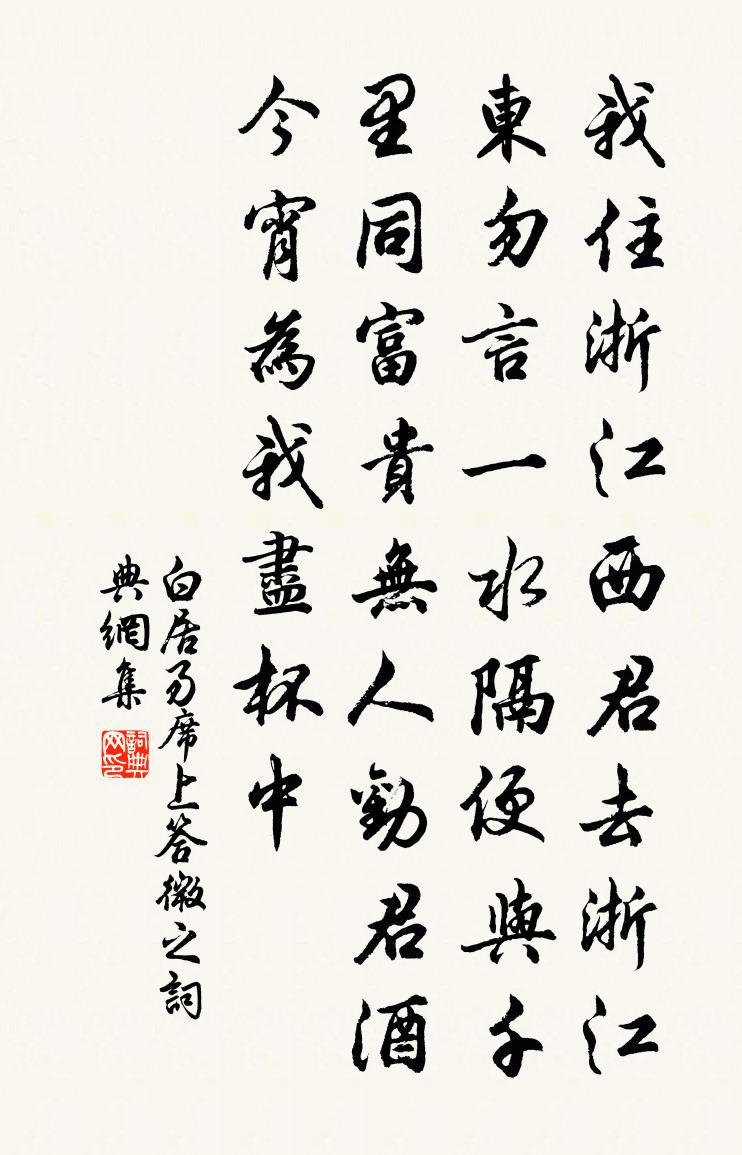 我住浙江西君去浙江
東勿言一水隔便與千
里同富貴無人勸君酒
今宵為我盡杯中
白居易席上答微之詞
典網集
詞典
网印